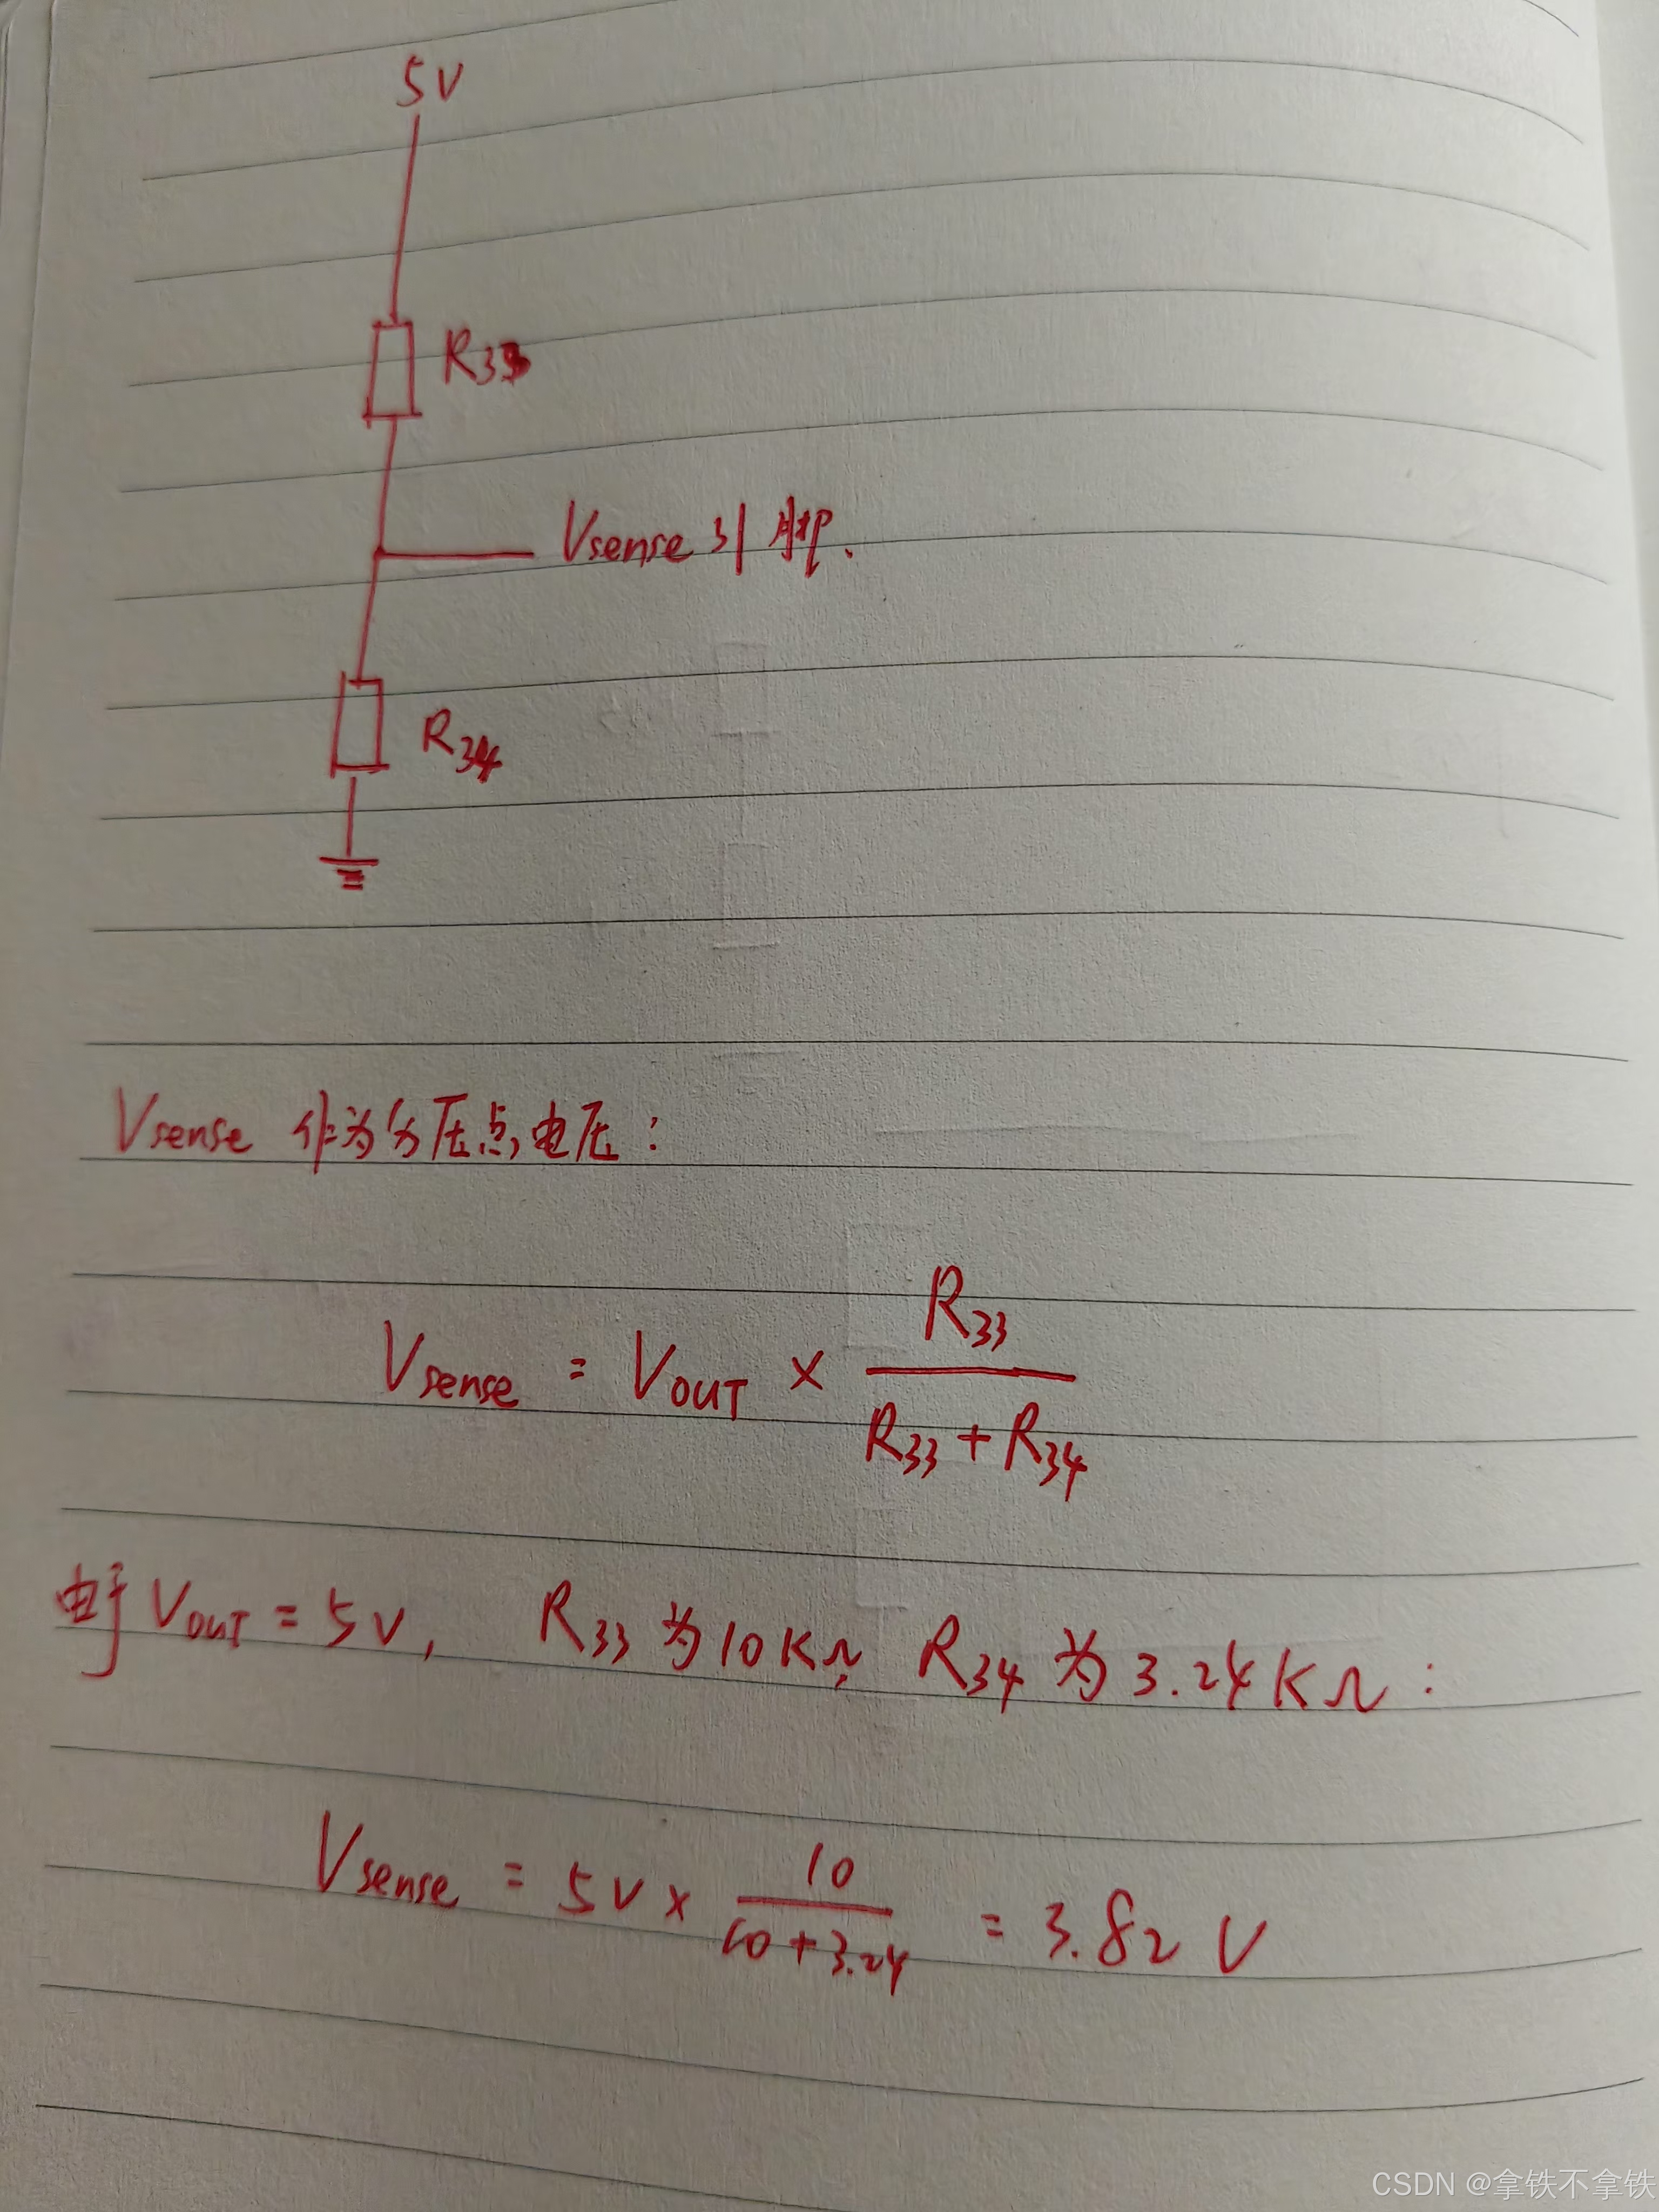 5V
R33
Vsense引脚.
R34
Vsense 作为分压点电压:
Vsense = VOUT × R33 / (R33 + R34)
由于 VOUT = 5V, R33 为 10KΩ, R34 为 3.24KΩ:
Vsense = 5V × 10 / (10 + 3.24) = 3.82 V
CSDN @拿铁不拿铁